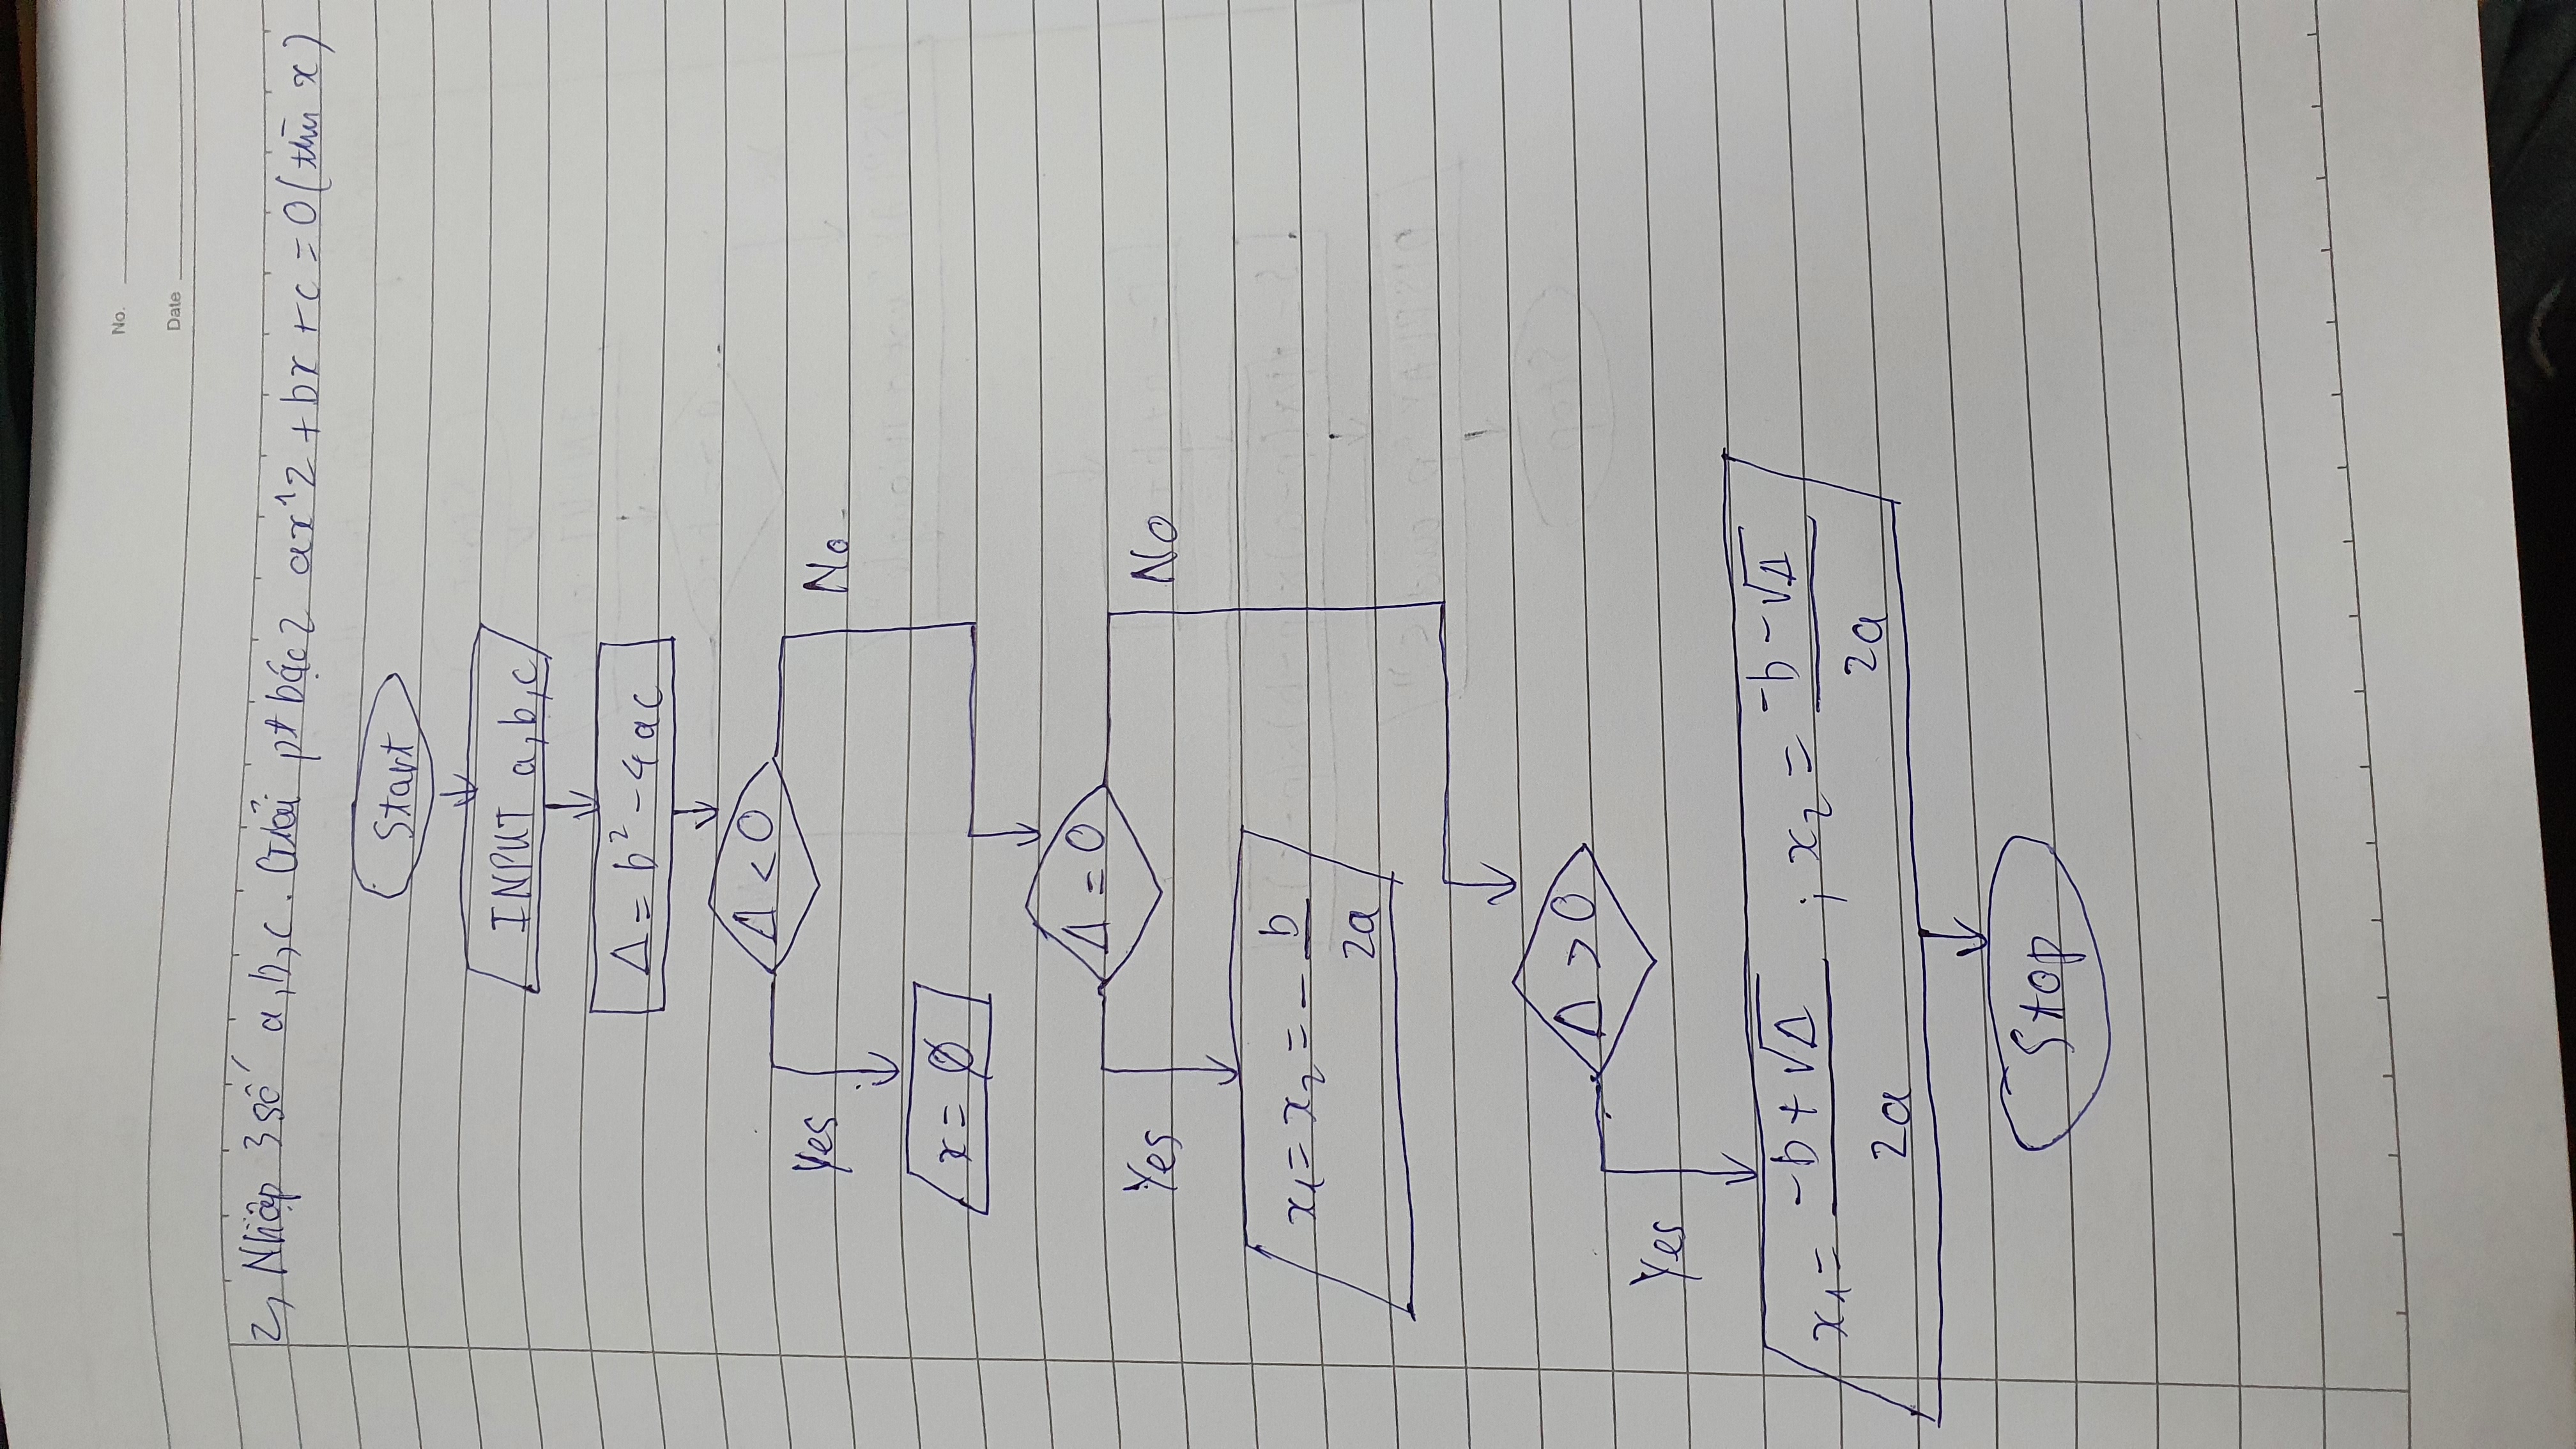 No.
Date
2, Nhập 3 số a,b,c. Giải pt bậc 2 ax^2 + bx + c = 0 (tìm x)
Start
INPUT a,b,c
Δ = b² - 4ac
Δ < 0
Yes
No
x = Ø
Δ = 0
Yes
No
x₁ = x₂ = - b
2a
Δ > 0
Yes
x₁ = -b + √Δ ; x₂ = -b - √Δ
2a 2a
Stop